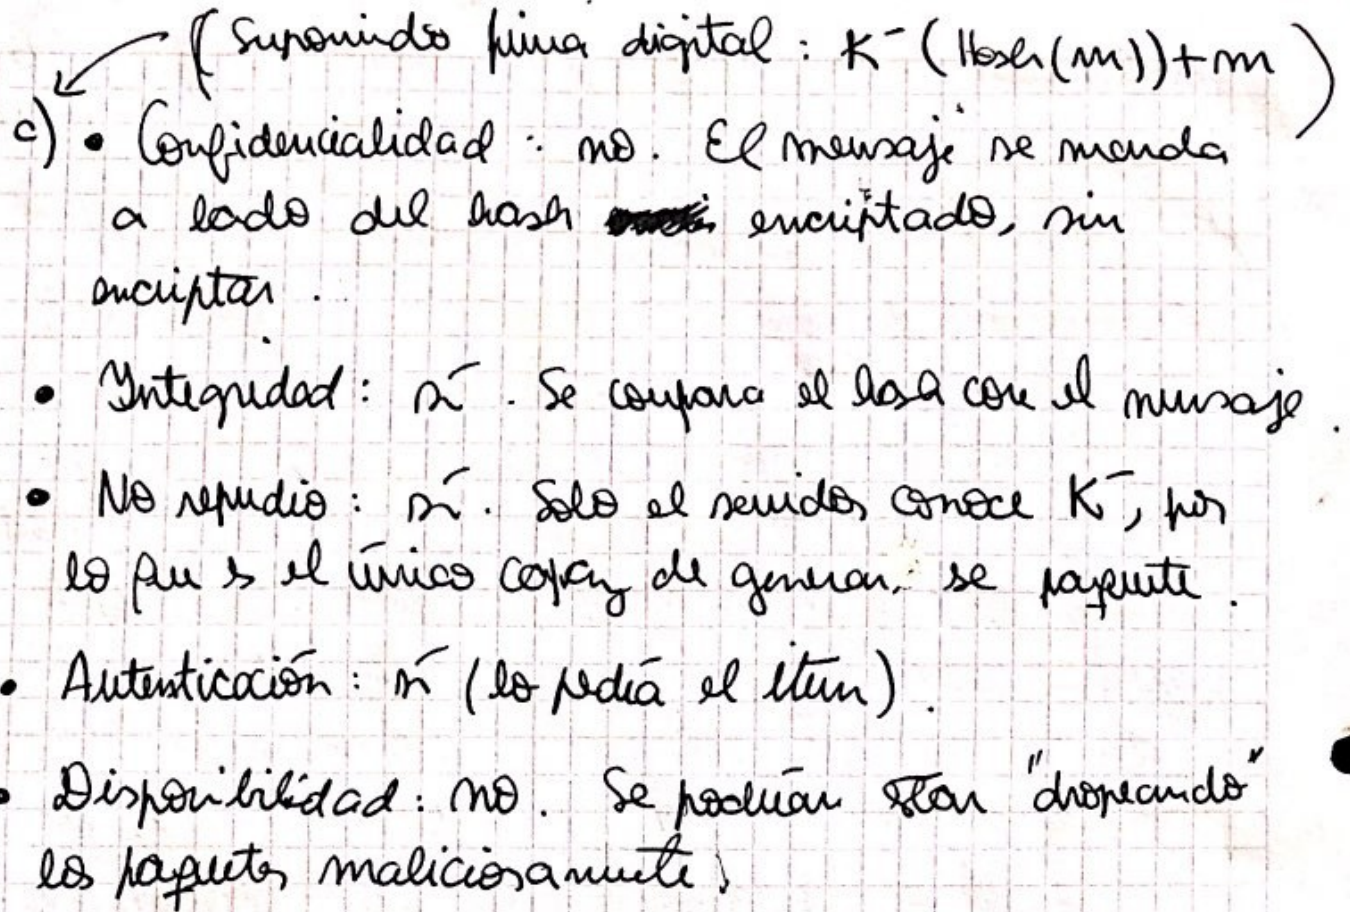 (Suponiendo firma digital: K⁻(Hash(m))+m)
c) • Confidencialidad: no. El mensaje se manda
a lado del hash encriptado, sin
encriptar.
• Integridad: sí. Se compara el hash con el mensaje.
• No repudio: sí. Solo el servidor conoce K⁻, por
lo que es el único capaz de generar ese paquete.
• Autenticación: sí (lo pedía el ítem).
• Disponibilidad: no. Se podrían estar "dropeando"
los paquetes maliciosamente.